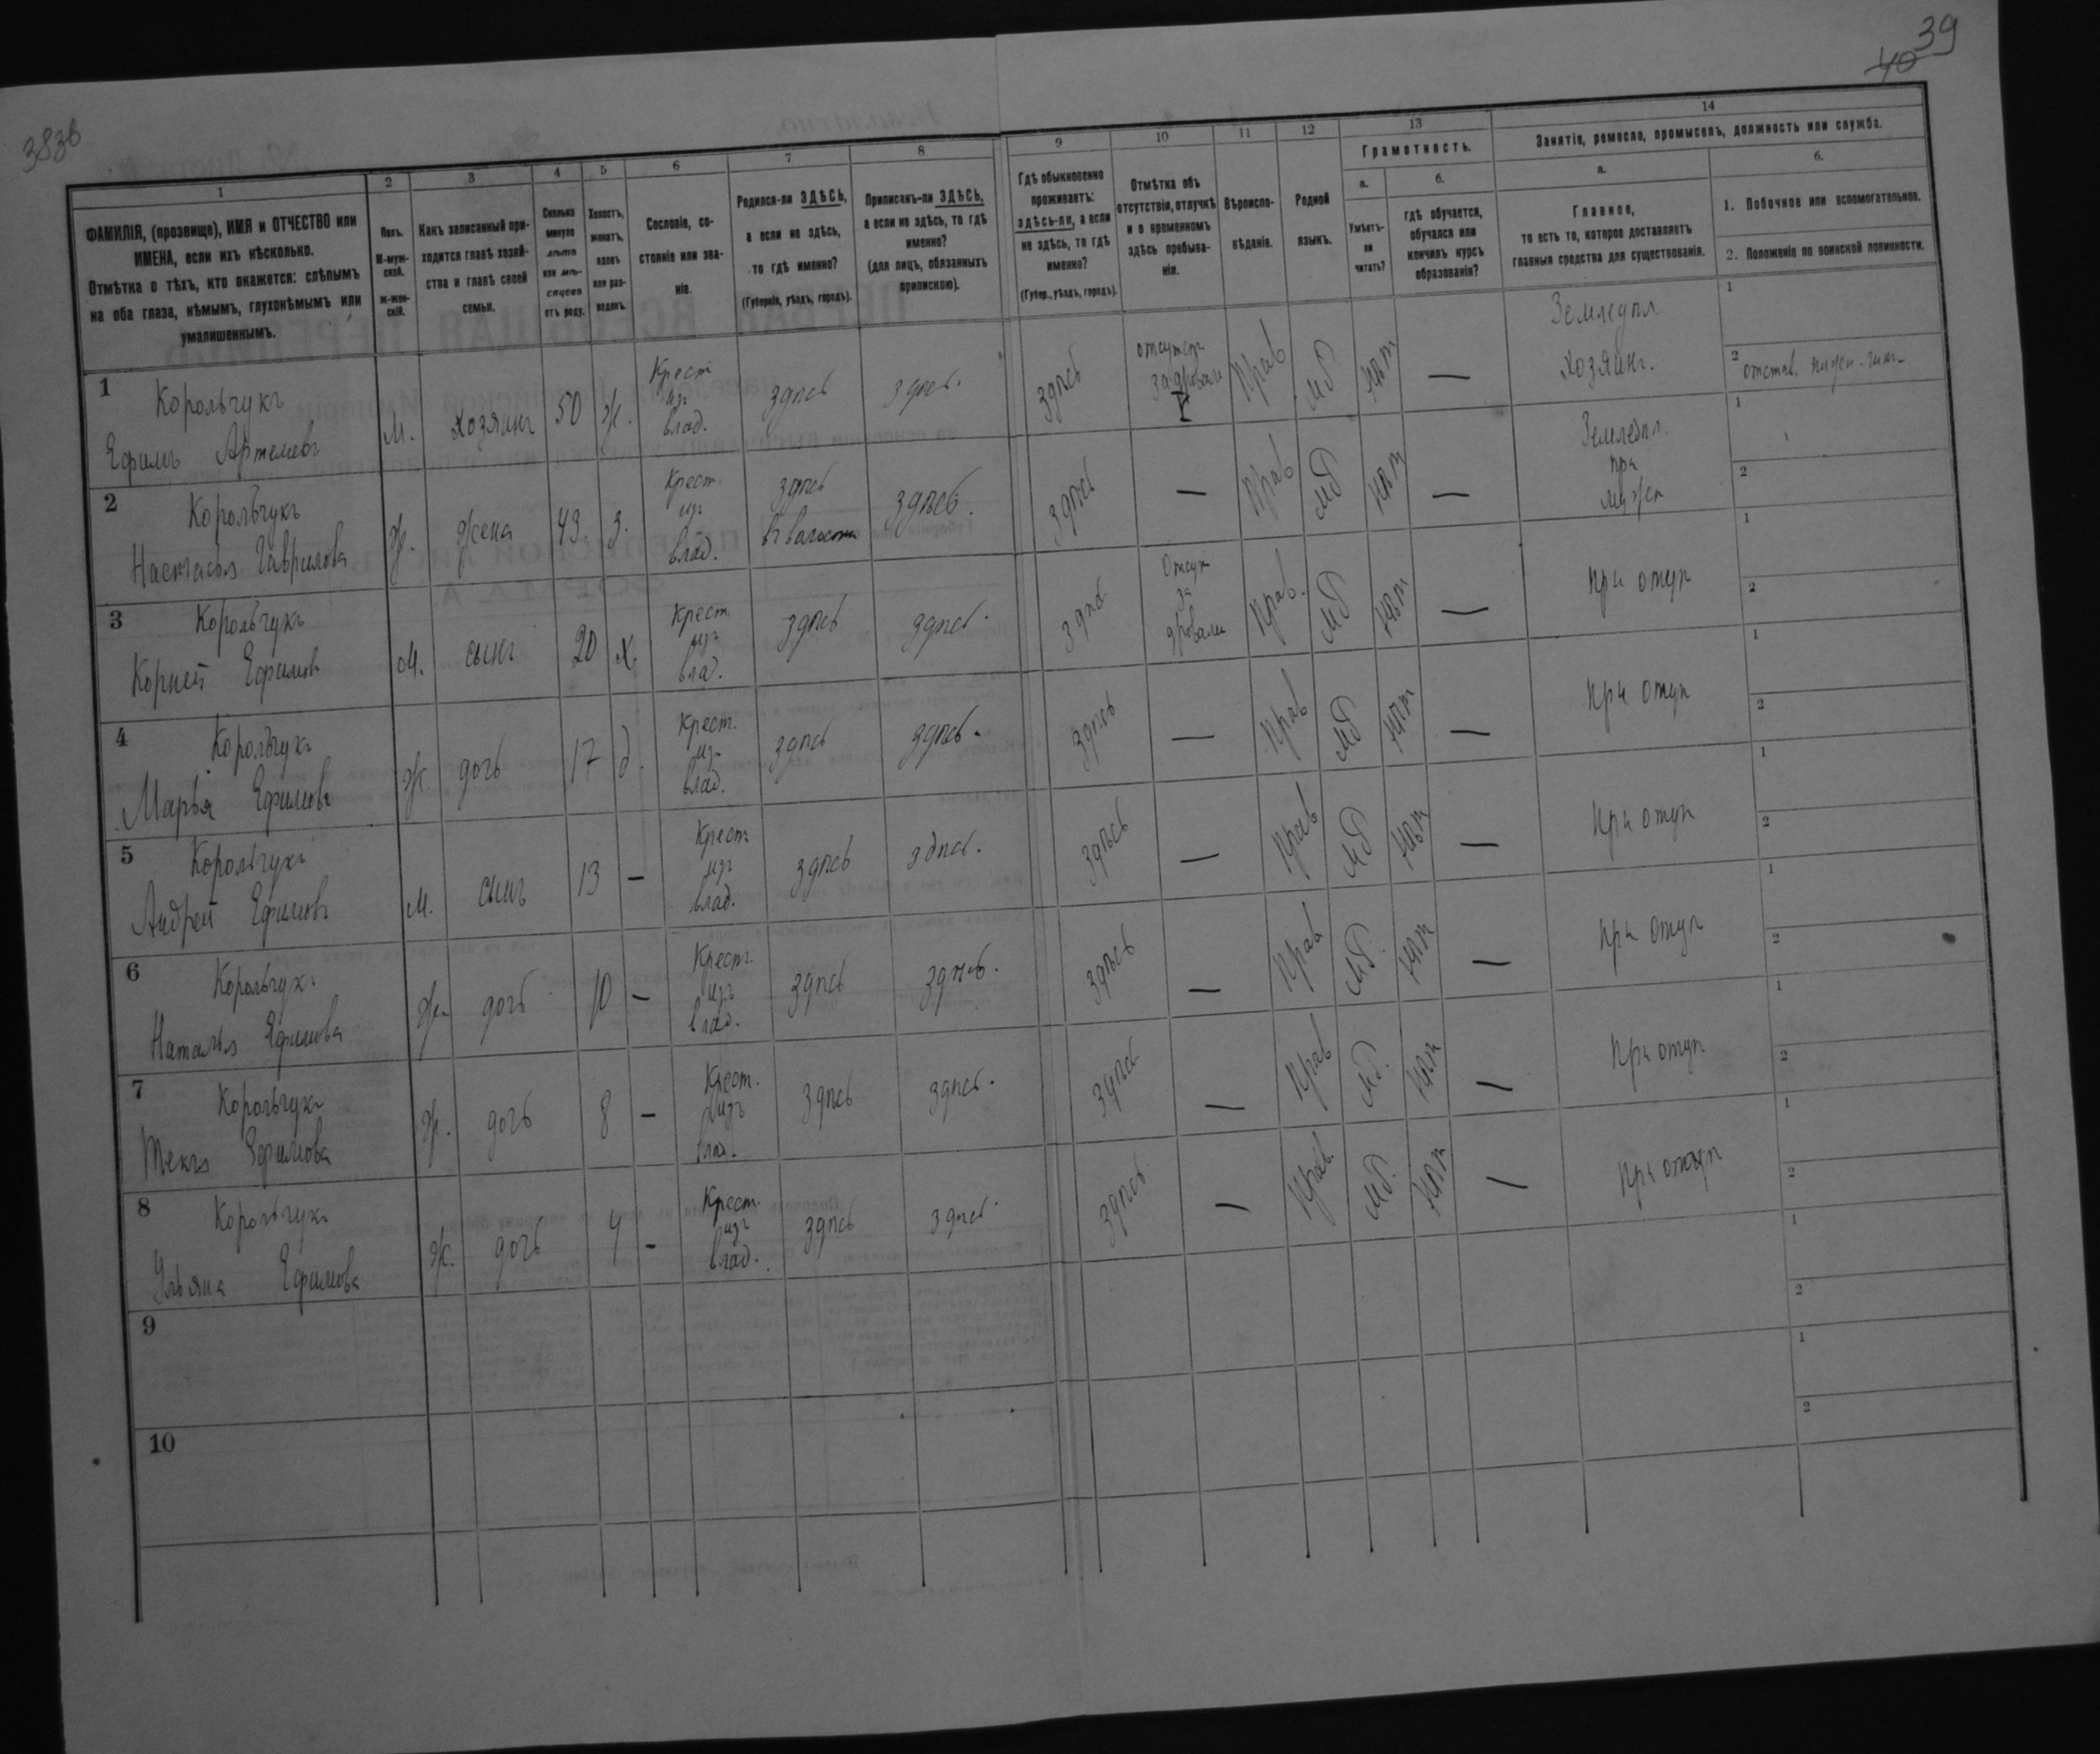 39
40
383б
1
2
3
4
5
6
7
8
9
10
11
12
13
14
ФАМИЛІЯ, (прозвище), ИМЯ и ОТЧЕСТВО или
ИМЕНА, если ихъ нѣсколько.
Отмѣтка о тѣхъ, кто окажется: слѣпымъ
на оба глаза, нѣмымъ, глухонѣмымъ или
умалишеннымъ.
Полъ.
М-муж-
ской.
Ж-жен-
скій.
Какъ записанный при-
ходится главѣ хозяй-
ства и главѣ своей
семьи.
Сколько
минуло
лѣтъ
или мѣ-
сяцевъ
отъ роду.
Холостъ,
женатъ,
вдовъ
или раз-
веденъ.
Сословіе, со-
стояніе или зва-
ніе.
Родился-ли ЗДѢСЬ,
а если не здѣсь,
то гдѣ именно?
(Губернія, уѣздъ, городъ).
Приписанъ-ли ЗДѢСЬ,
а если не здѣсь, то гдѣ
именно?
(для лицъ, обязанныхъ
припискою).
Гдѣ обыкновенно
проживаетъ:
здѣсь-ли, а если
не здѣсь, то гдѣ
именно?
(Губер., уѣздъ, городъ).
Отмѣтка объ
отсутствіи, отлучкѣ
и о временномъ
здѣсь пребыва-
ніи.
Вѣроиспо-
вѣданіе.
Родной
языкъ.
Грамотность.
а.
Умѣетъ-
ли
читать?
б.
гдѣ обучается,
обучался или
кончилъ курсъ
образованія?
Занятіе, ремесло, промыселъ, должность или служба.
а.
Главное,
то есть то, которое доставляетъ
главныя средства для существованія.
б.
1. Побочное или вспомогательное.
2. Положеніе по воинской повинности.
1
Корольчукъ
Ефимъ Артемовъ
М. хозяинъ 50 ж.
Крест
изъ
влад.
здѣсь здѣсь. здѣсь
отсутст
за дровами
Прав МР нѣт —
Земледѣл.
Хозяинъ.
1
2 отстав.
2
Корольчукъ
Настасья Гаврилова
Ж. жена 43. з.
Крест.
изъ
влад.
здѣсь
въ волости
здѣсь. здѣсь — Прав МР нѣт —
Земледѣл.
при
мужѣ
1
2
3
Корольчукъ
Корней Ефимовъ
М. сынъ 20 х.
Крест
изъ
вла.
здѣсь здѣсь. здѣсь
Отсут
за
дровами
Прав. МР нѣт — при отцѣ
1
2
4
Корольчукъ
Марья Ефимова
ж дочь 17 д.
Крест.
изъ
влад.
здѣсь здѣсь. здѣсь — Прав МР нѣт — при отцѣ
1
2
5
Корольчукъ
Андрей Ефимовъ
М. сынъ 13 —
Крест
изъ
влад.
здѣсь здѣсь. здѣсь — Прав МР нѣт — при отцѣ
1
2
6
Корольчук
Наталья Ефимова
ж. дочь 10 —
Крест.
изъ
влад.
здѣсь здѣсь. здѣсь — Прав МР. нѣт — при отцѣ
1
2
7
Корольчукъ
Текля Ефимова
ж. дочь 8 —
Крест.
изъ
влад.
здѣсь здѣсь. здѣсь — Прав МР. нѣт — При отцѣ
1
2
8
Корольчук
Ульяна Ефимова
ж. дочь 4 —
Крест.
изъ
влад.
здѣсь здѣсь. здѣсь — Прав МР. нѣт — при отцѣ
1
2
9
1
2
10
1
2